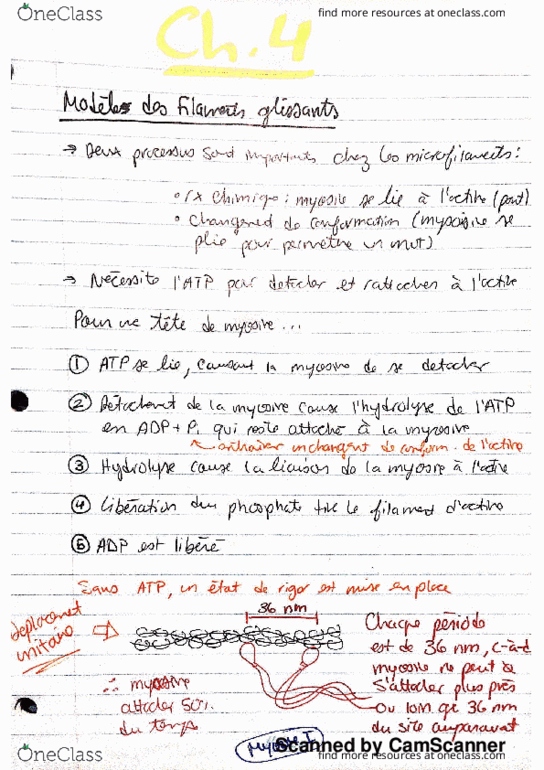 OneClass
find more resources at oneclass.com
Ch.4
Modèles des filaments glissants
→ Deux processus sont importants chez les microfilaments:
• rx chimique: myosine se lie à l'actine (pont)
• changement de conformation (myosine se
plie pour permettre un mvt)
→ Nécessite l'ATP pour détacher et rattacher à l'actine
Pour une tête de myosine...
① ATP se lie, causant la myosine de se détacher
② Détachement de la myosine cause l'hydrolyse de l'ATP
en ADP + Pi qui reste attaché à la myosine
↖ entraîner un changent de conform. de l'actine
③ Hydrolyse cause la liaison de la myosine à l'actine
④ Libération du phosphate tire le filament d'actine
⑤ ADP est libéré
Sans ATP, un état de rigor est mise en place
36 nm
déplacement
unitaire
Chaque période
est de 36 nm, c-à-d
myosine ne peut se
s'attacher plus près
ou loin qe 36 nm
du site auparavant
∴ myosine
attacher 50%
du temps
myosine I
Scanned by CamScanner
OneClass
find more resources at oneclass.com